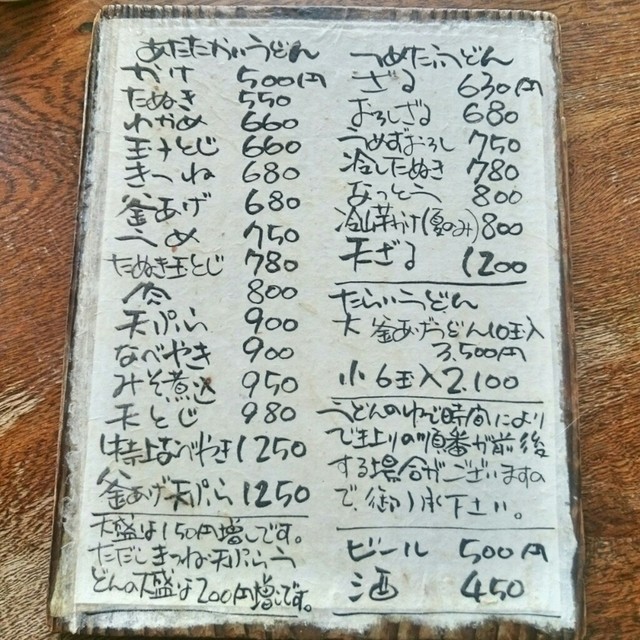 あたたかいうどん
かけ 500円
たぬき 550
わかめ 660
玉子とじ 660
きつね 680
釜あげ 680
うめ 750
たぬき玉とじ 780
肉 800
天ぷら 900
なべやき 900
みそ煮込 950
天とじ 980
特上なべやき 1250
釜あげ天ぷら 1250
大盛は150円増しです。
ただしきつね天ぷらう
どんの大盛は200円増しです。
つめたいうどん
ざる 630円
おろしざる 680
うめずおろし 750
冷したぬき 780
なっとう 800
冷山菜かけ(夏のみ) 800
天ざる 1200
たらいうどん
大 釜あげうどん10玉入
3,500円
小 6玉入 2.100
うどんのゆで時間により
で上りの順番が前後
する場合がございますの
で、御了承下さい。
ビール 500円
酒 450